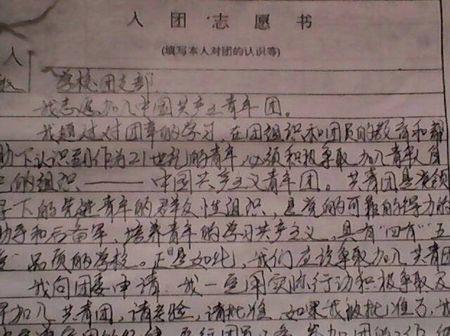 入团志愿书
(填写本人对团的认识等)
人
学校团支部
我志愿加入中国共产主义青年团。
我通过对团章的学习,在团组织和团员的教育和帮
助下认识到作为21世纪的青年,必须积极争取加入青年人自
己的组织——中国共产主义青年团。共青团是党领
导下的先进青年的群众性组织,是党的可靠的得力的
助手和后备军,培养青年的学习共产主义,具有"四有"五
品质的学校。正是如此,我们应该争取加入共青团
我向团委申请,我一定用实际行动积极争取及
早加入共青团,请考验,请批准。如果我被批准了,我